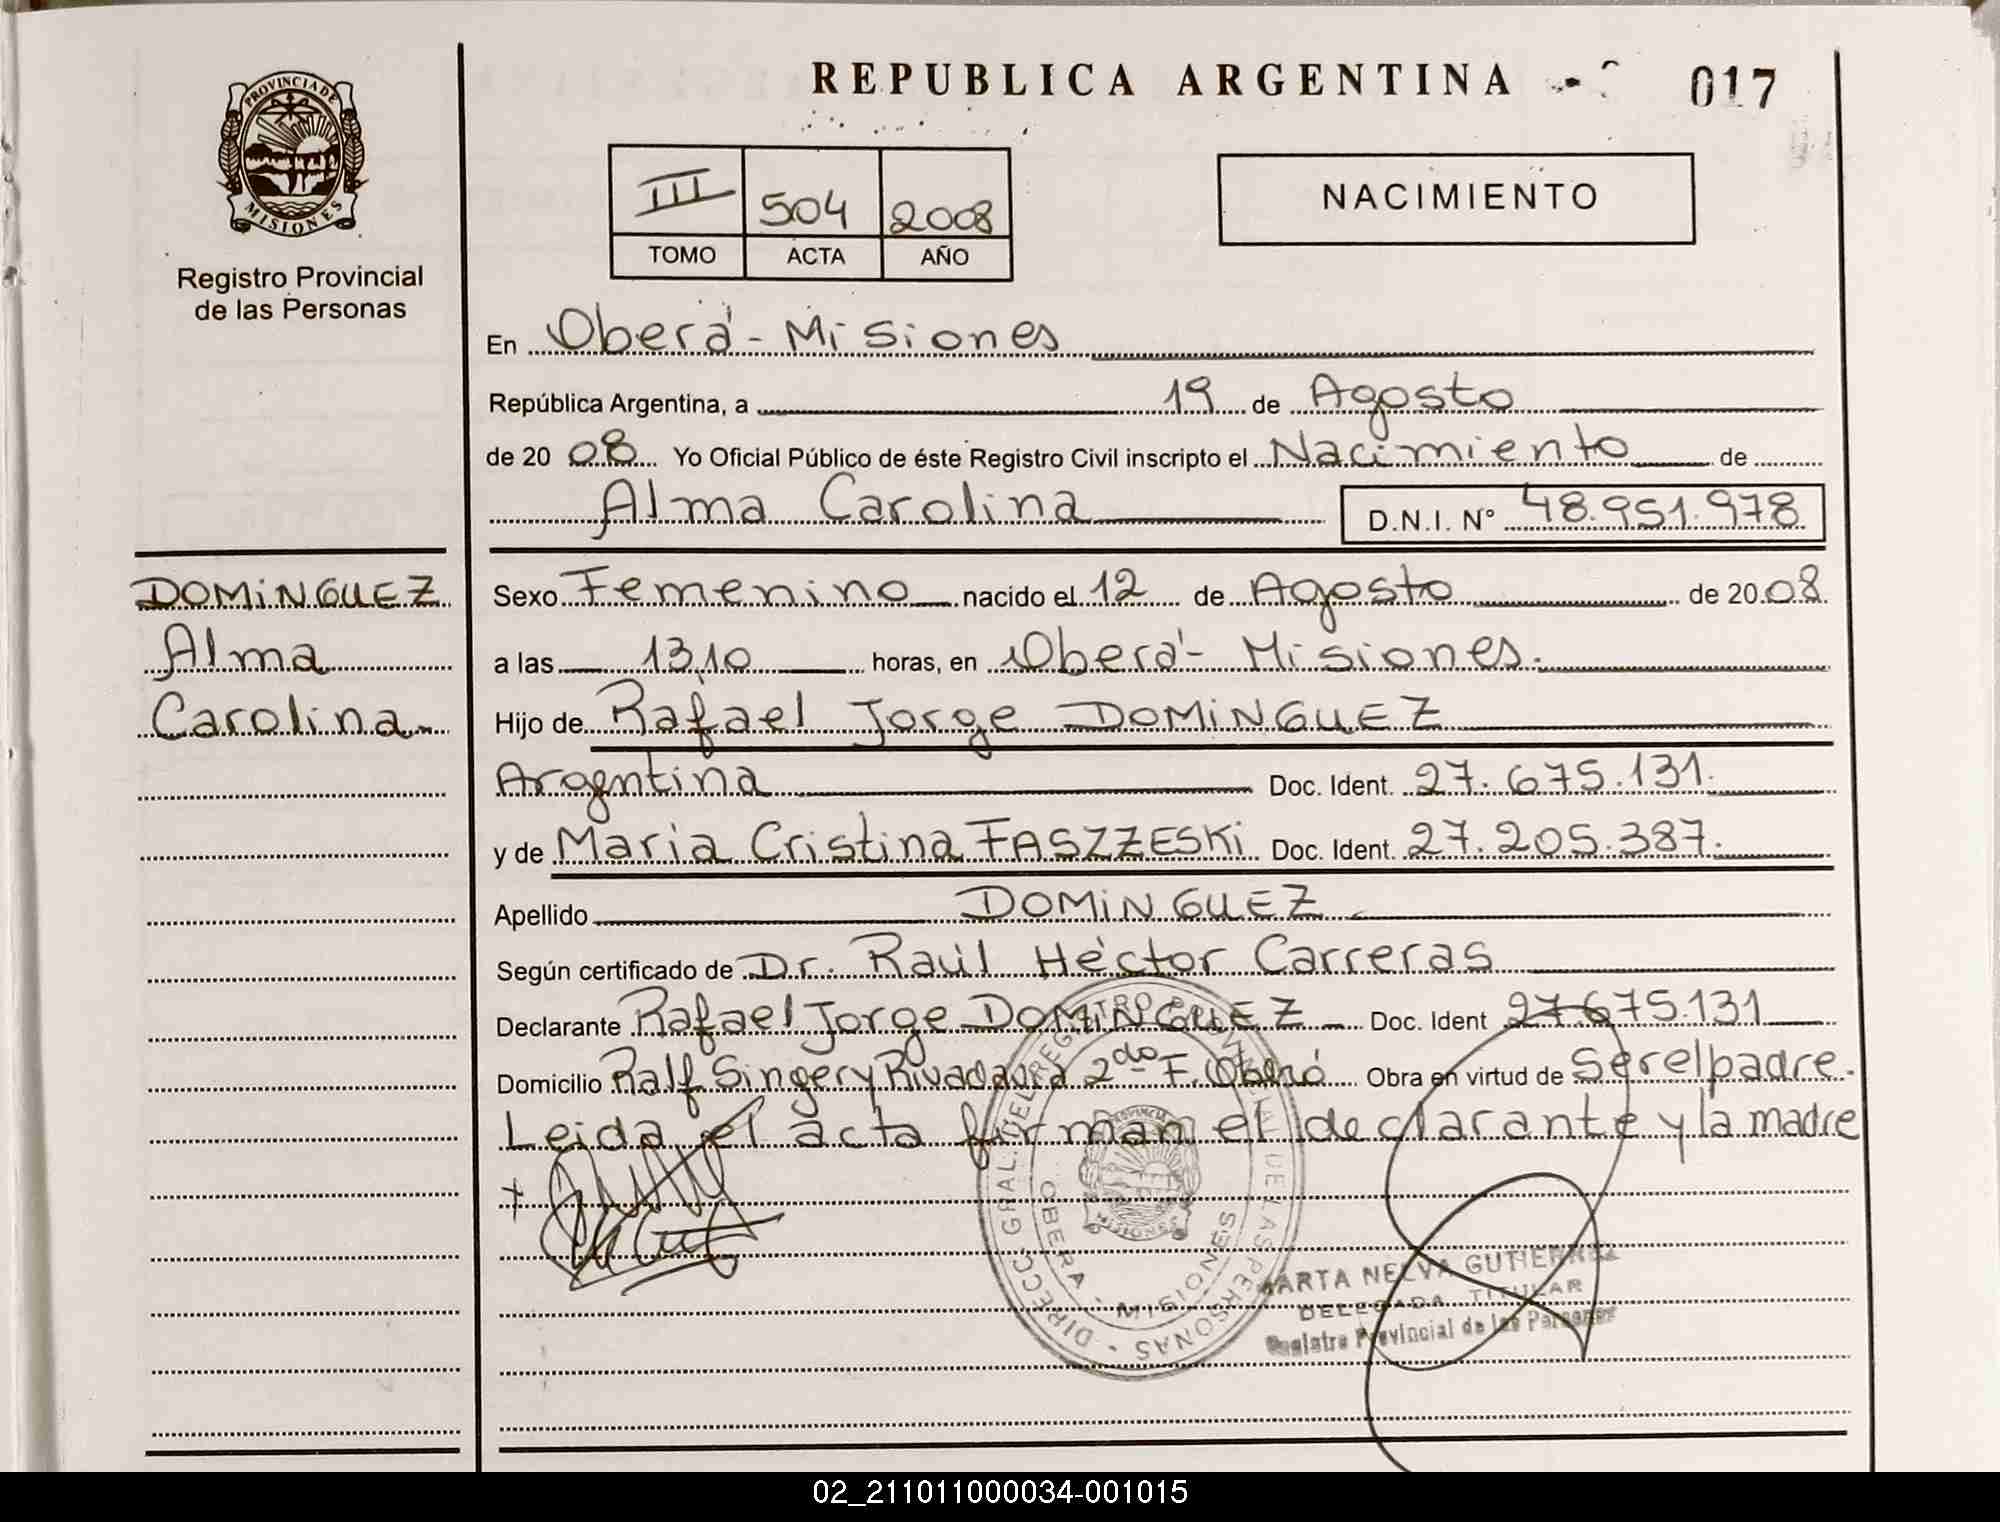 REPUBLICA ARGENTINA
017
PROVINCIA DE
MISIONES
Registro Provincial
de las Personas
III 504 2008
TOMO ACTA AÑO
NACIMIENTO
En Oberá - Misiones
República Argentina, a 19 de Agosto
de 20 08 Yo Oficial Público de éste Registro Civil inscripto el Nacimiento de
Alma Carolina D.N.I. N° 48.951.978
DOMiNGUEZ
Alma
Carolina
Sexo Femenino nacido el 12 de Agosto de 20 08
a las 13,10 horas, en Oberá - Misiones.
Hijo de Rafael Jorge DOMiNGUEZ
Argentina Doc. Ident. 27.675.131.
y de Maria Cristina FASZZESKi Doc. Ident. 27.205.387.
Apellido DOMiNGUEZ
Según certificado de Dr. Raúl Héctor Carreras
Declarante Rafael Jorge DOMiNGUEZ Doc. Ident 27.675.131
Domicilio Ralf Singer y Rivadavia 2do F. Oberá Obra en virtud de ser el padre.
Leida el acta firman el declarante y la madre
DIRECC. GRAL. DEL REGISTRO PROVINCIAL DE LAS PERSONAS
OBERA - MISIONES
PROVINCIA
MISIONES
MARTA NELVA GUTIERREZ
DELEGADA TITULAR
Registro Provincial de las Personas
02_211011000034-001015